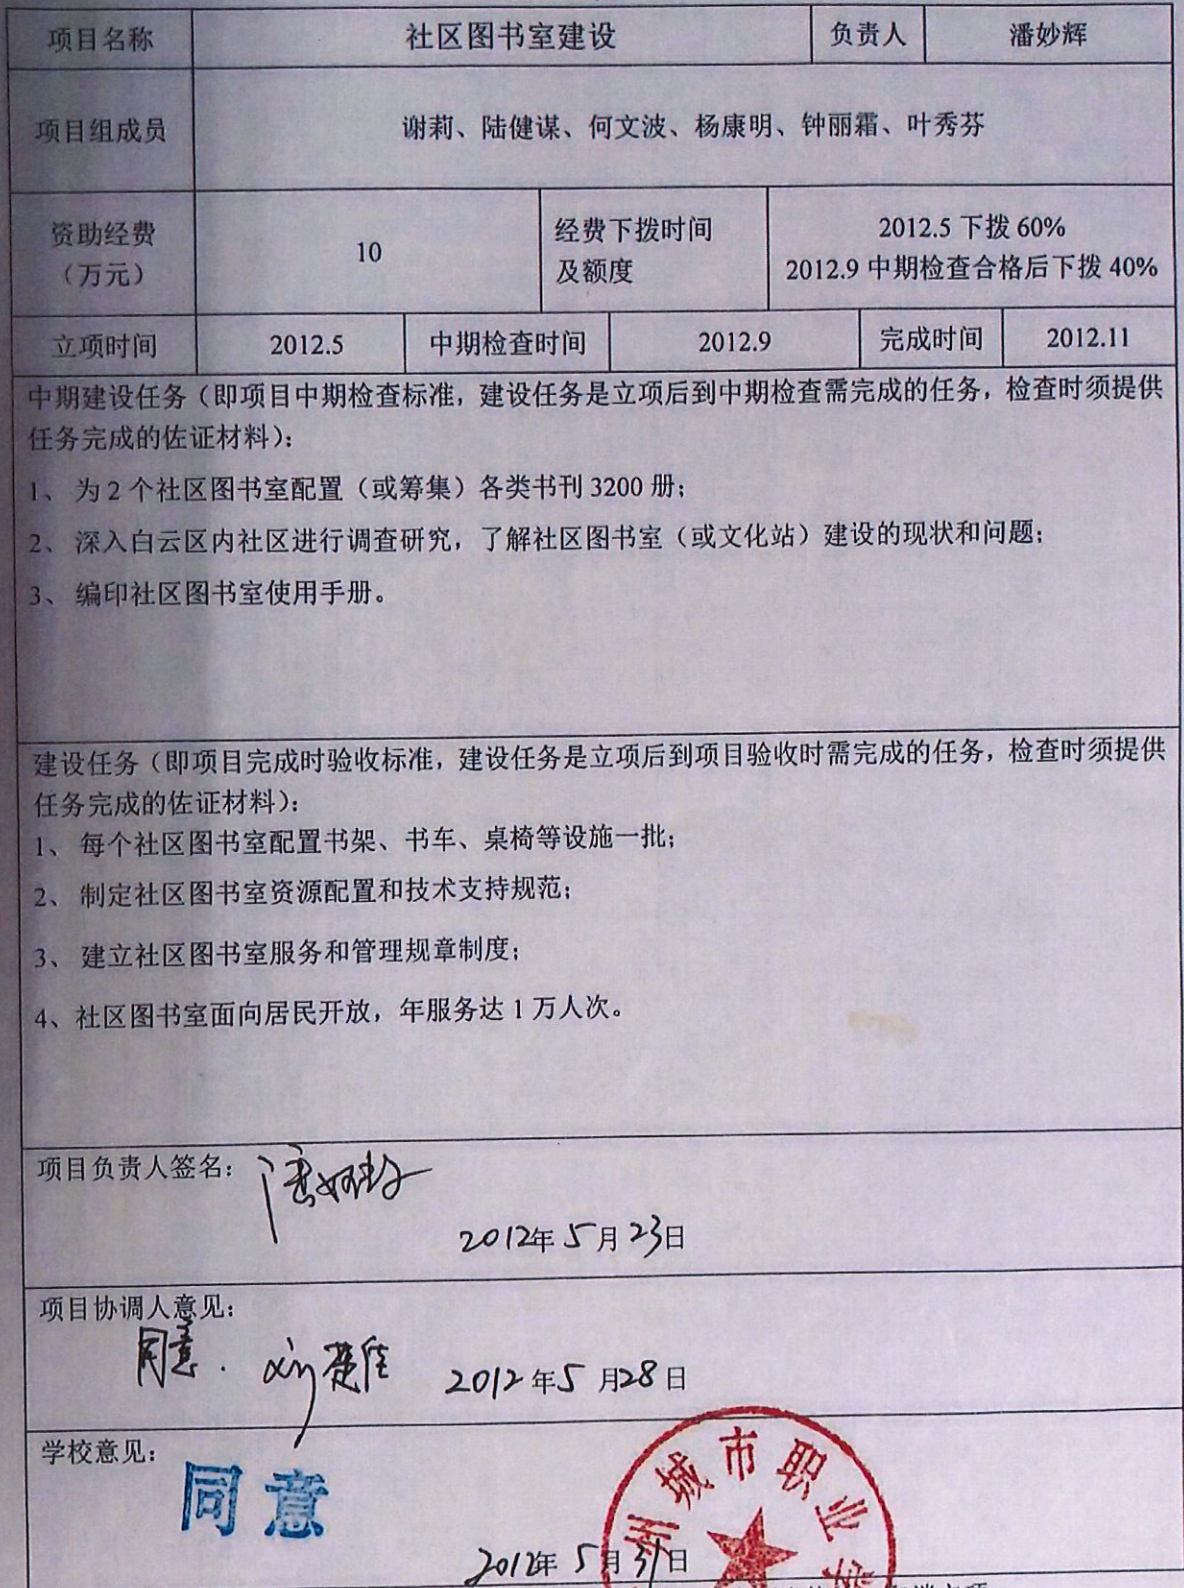 项目名称 社区图书室建设 负责人 潘妙辉
项目组成员 谢莉、陆健谋、何文波、杨康明、钟丽霜、叶秀芬
资助经费
（万元）
10
经费下拨时间
及额度
2012.5 下拨 60%
2012.9 中期检查合格后下拨 40%
立项时间 2012.5 中期检查时间 2012.9 完成时间 2012.11
中期建设任务（即项目中期检查标准，建设任务是立项后到中期检查需完成的任务，检查时须提供
任务完成的佐证材料）：
1、 为 2 个社区图书室配置（或筹集）各类书刊 3200 册；
2、 深入白云区内社区进行调查研究，了解社区图书室（或文化站）建设的现状和问题；
3、 编印社区图书室使用手册。
建设任务（即项目完成时验收标准，建设任务是立项后到项目验收时需完成的任务，检查时须提供
任务完成的佐证材料）：
1、 每个社区图书室配置书架、书车、桌椅等设施一批；
2、 制定社区图书室资源配置和技术支持规范；
3、 建立社区图书室服务和管理规章制度；
4、社区图书室面向居民开放，年服务达 1 万人次。
项目负责人签名： 潘妙辉
2012年 5 月 23日
项目协调人意见：
同意. 刘楚佳 2012 年 5 月 28 日
学校意见：
同意
州城市职业学
2012年 5 月 31日